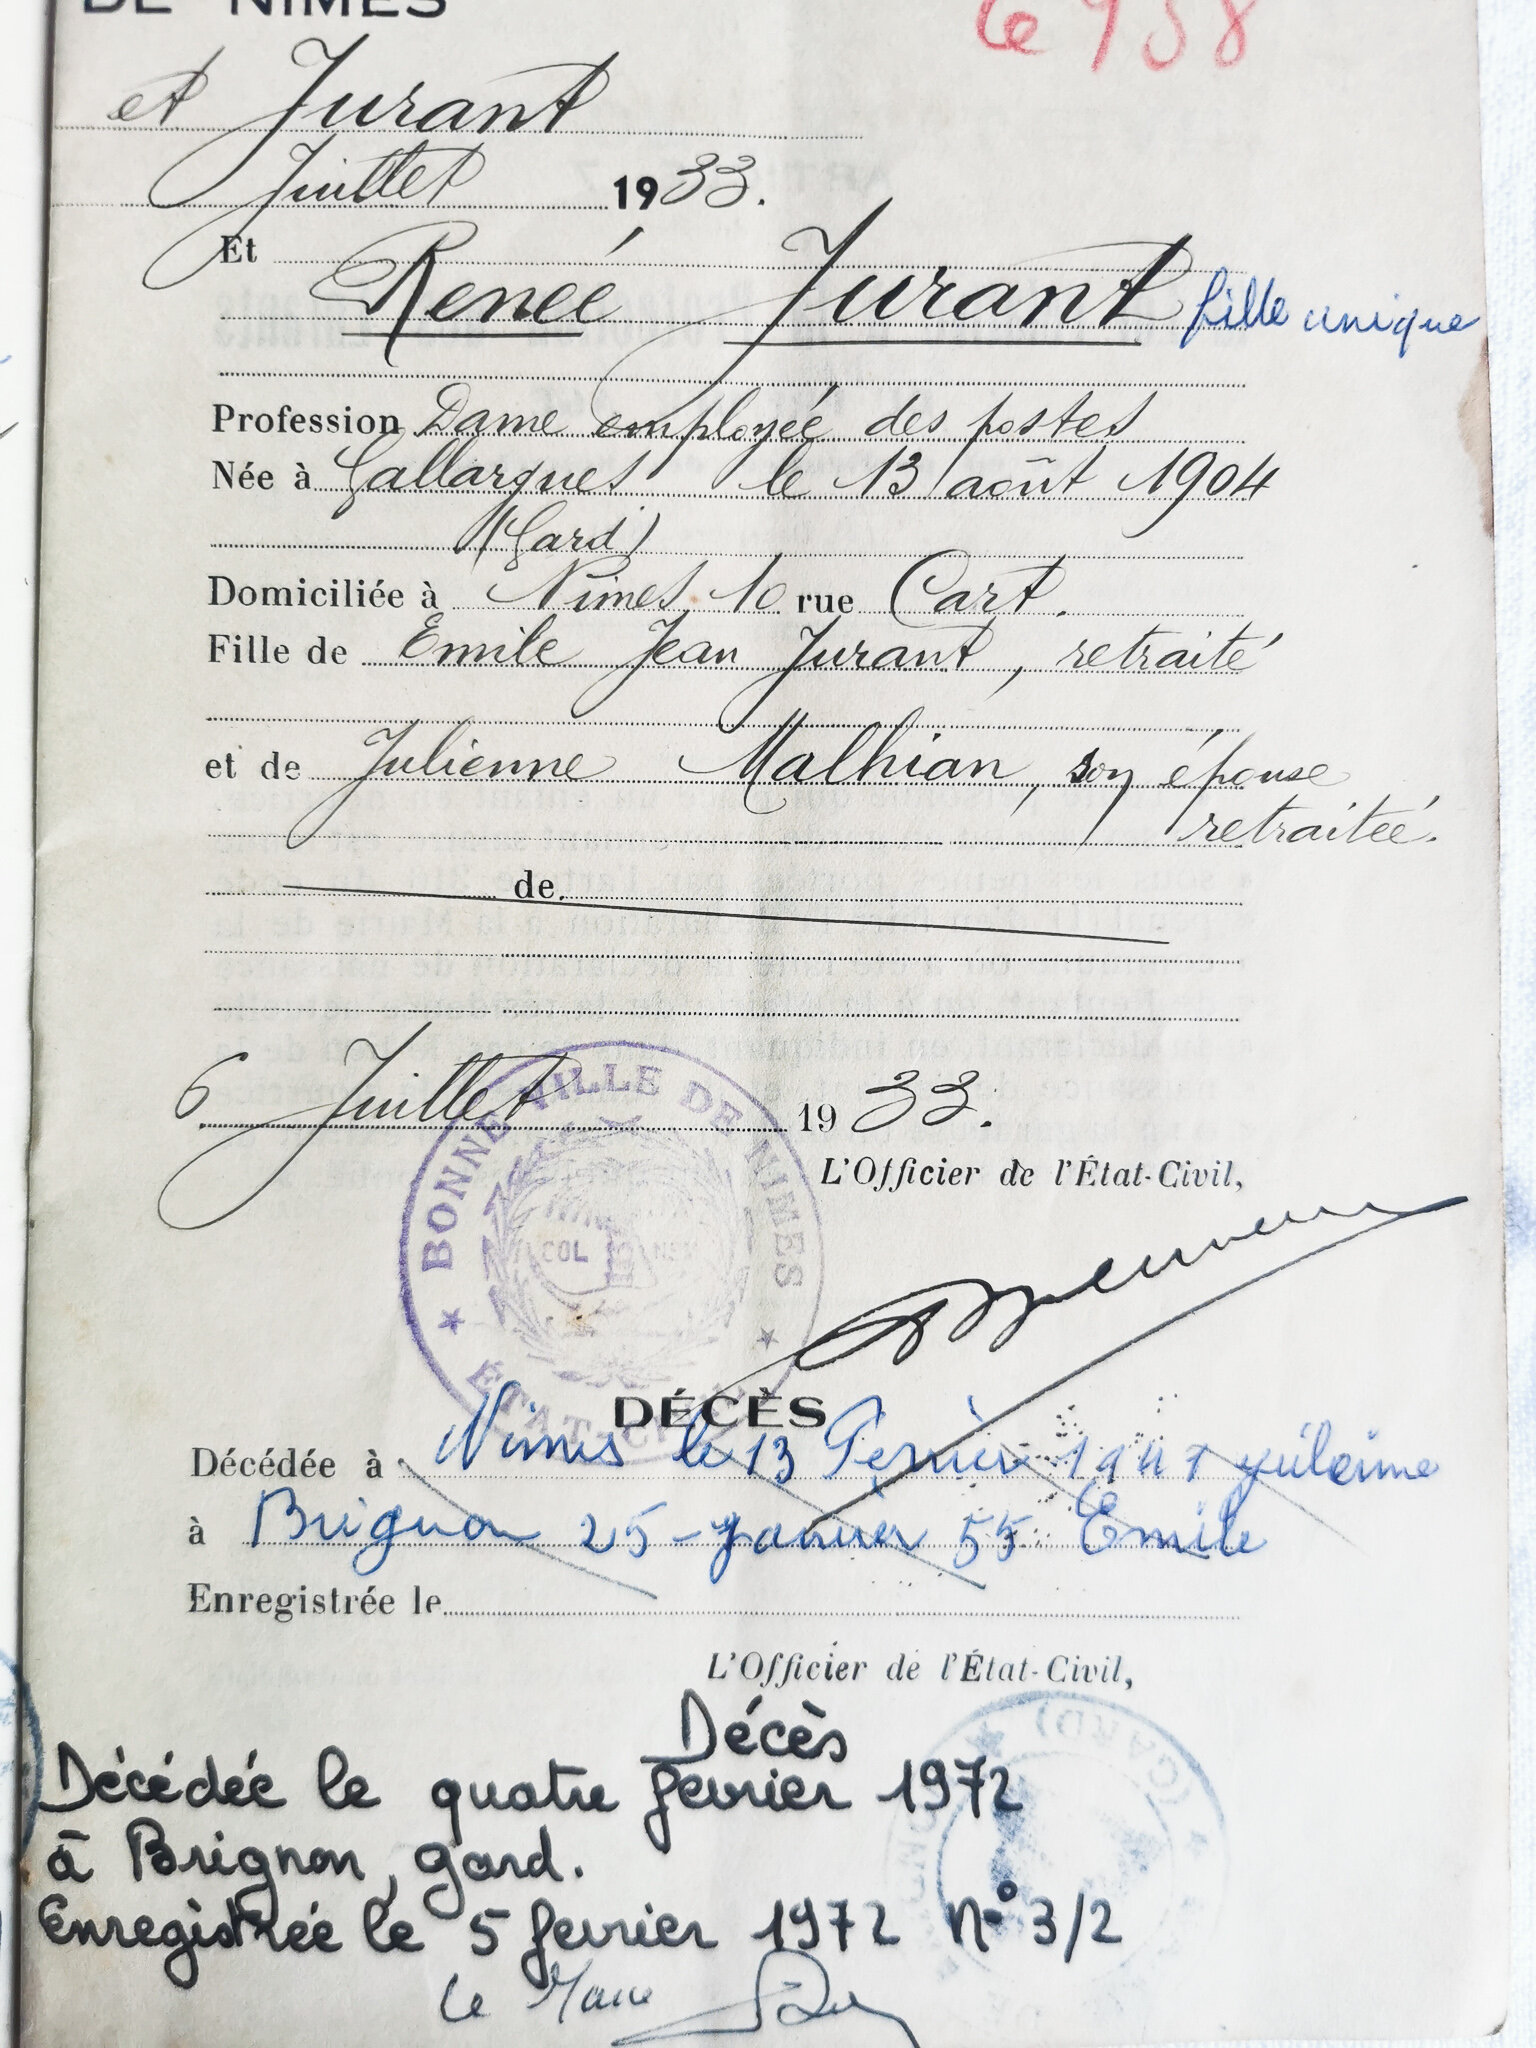 DE NIMES
6958
et Jurant
Juillet 1933.
Et Renée Jurant fille unique
Profession Dame employée des postes
Née à Gallargues le 13 août 1904
(Gard)
Domiciliée à Nimes, 10 rue Cart.
Fille de Emile Jean Jurant, retraité
et de Julienne Malhian, son épouse
retraitée.
de
6 Juillet 1933.
L'Officier de l'État-Civil,
BONNE VILLE DE NIMES
COL NEM
ÉTAT-CIVIL
DÉCÈS
Décédée à Nimes le 13 Fevrier 1941
à Brignon 25 - Janvier 55 Emile
Enregistrée le
L'Officier de l'État-Civil,
(GARD)
Décès
Décédée le quatre fevrier 1972
à Brignon, gard.
Enregistrée le 5 fevrier 1972 N° 3/2
Le Maire